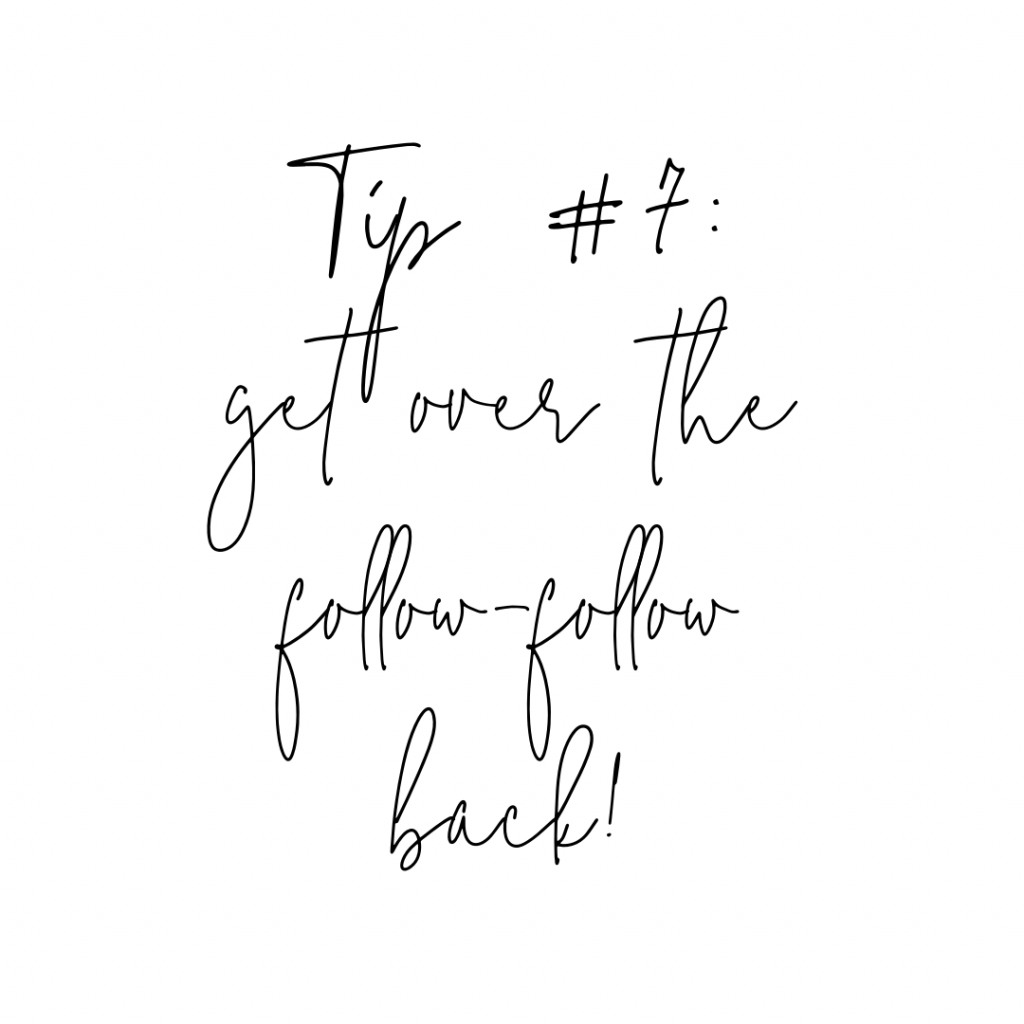 Tip #7:
get over the
follow-follow
back!